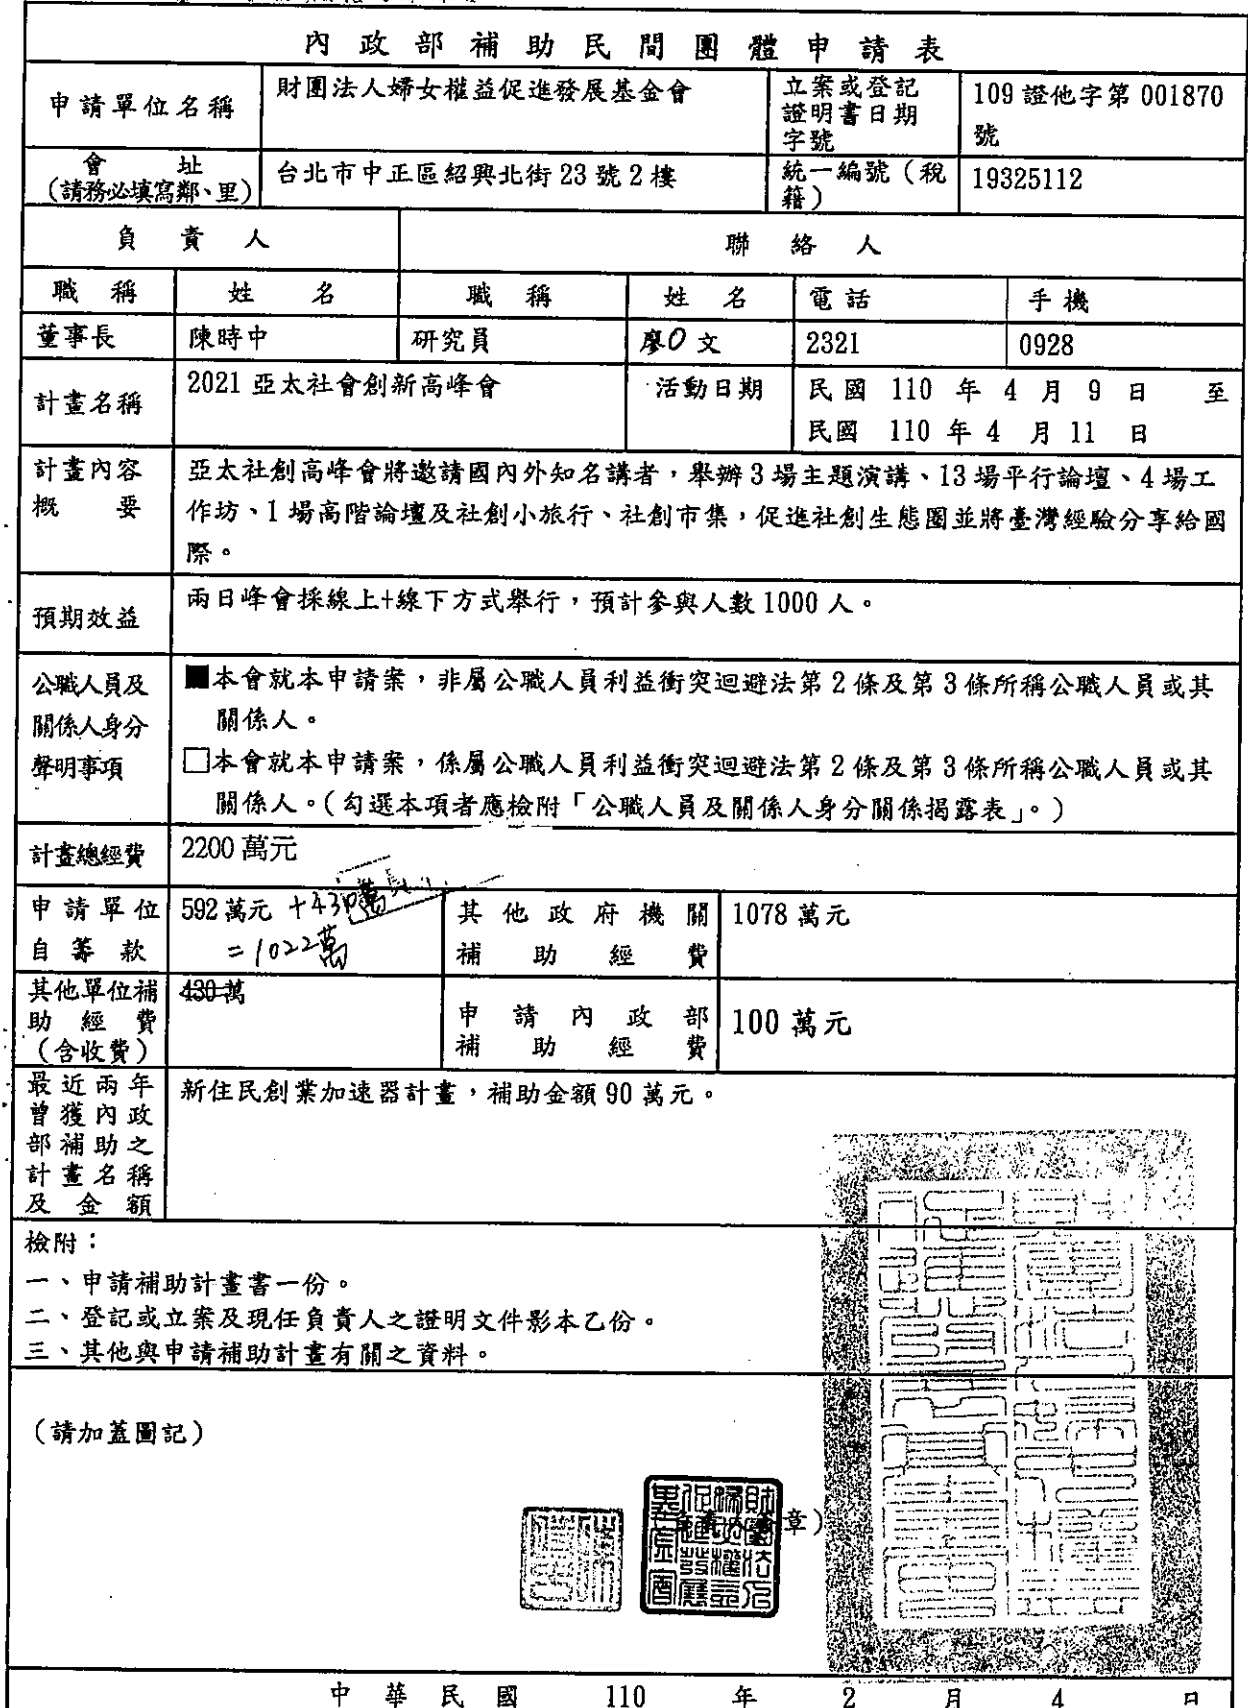 內政部補助民間團體申請表
申請單位名稱
財團法人婦女權益促進發展基金會
立案或登記
證明書日期
字號
109 證他字第 001870
號
會 址
(請務必填寫鄰、里)
台北市中正區紹興北街 23 號 2 樓
統一編號（稅
籍）
19325112
負 責 人
聯 絡 人
職 稱
姓 名
職 稱
姓 名
電 話
手 機
董事長
陳時中
研究員
廖O文
2321
0928
計畫名稱
2021 亞太社會創新高峰會
活動日期
民國 110 年 4 月 9 日 至
民國 110 年 4 月 11 日
計畫內容
概 要
亞太社創高峰會將邀請國內外知名講者，舉辦 3 場主題演講、13 場平行論壇、4 場工
作坊、1 場高階論壇及社創小旅行、社創市集，促進社創生態圈並將臺灣經驗分享給國
際。
預期效益
兩日峰會採線上+線下方式舉行，預計參與人數 1000 人。
公職人員及
關係人身分
聲明事項
■本會就本申請案，非屬公職人員利益衝突迴避法第 2 條及第 3 條所稱公職人員或其
關係人。
□本會就本申請案，係屬公職人員利益衝突迴避法第 2 條及第 3 條所稱公職人員或其
關係人。(勾選本項者應檢附「公職人員及關係人身分關係揭露表」。)
計畫總經費
2200 萬元
申請單位
自籌款
592 萬元 +430萬
=1022萬
其他政府機關
補助經費
1078 萬元
其他單位補
助經費
(含收費)
430 萬
申請內政部
補助經費
100 萬元
最近兩年
曾獲內政
部補助之
計畫名稱
及金額
新住民創業加速器計畫，補助金額 90 萬元。
檢附：
一、申請補助計畫書一份。
二、登記或立案及現任負責人之證明文件影本乙份。
三、其他與申請補助計畫有關之資料。
(請加蓋圖記)
章)
財團法人
婦女權益
促進發展
基金會
中華民國 110 年 2 月 4 日